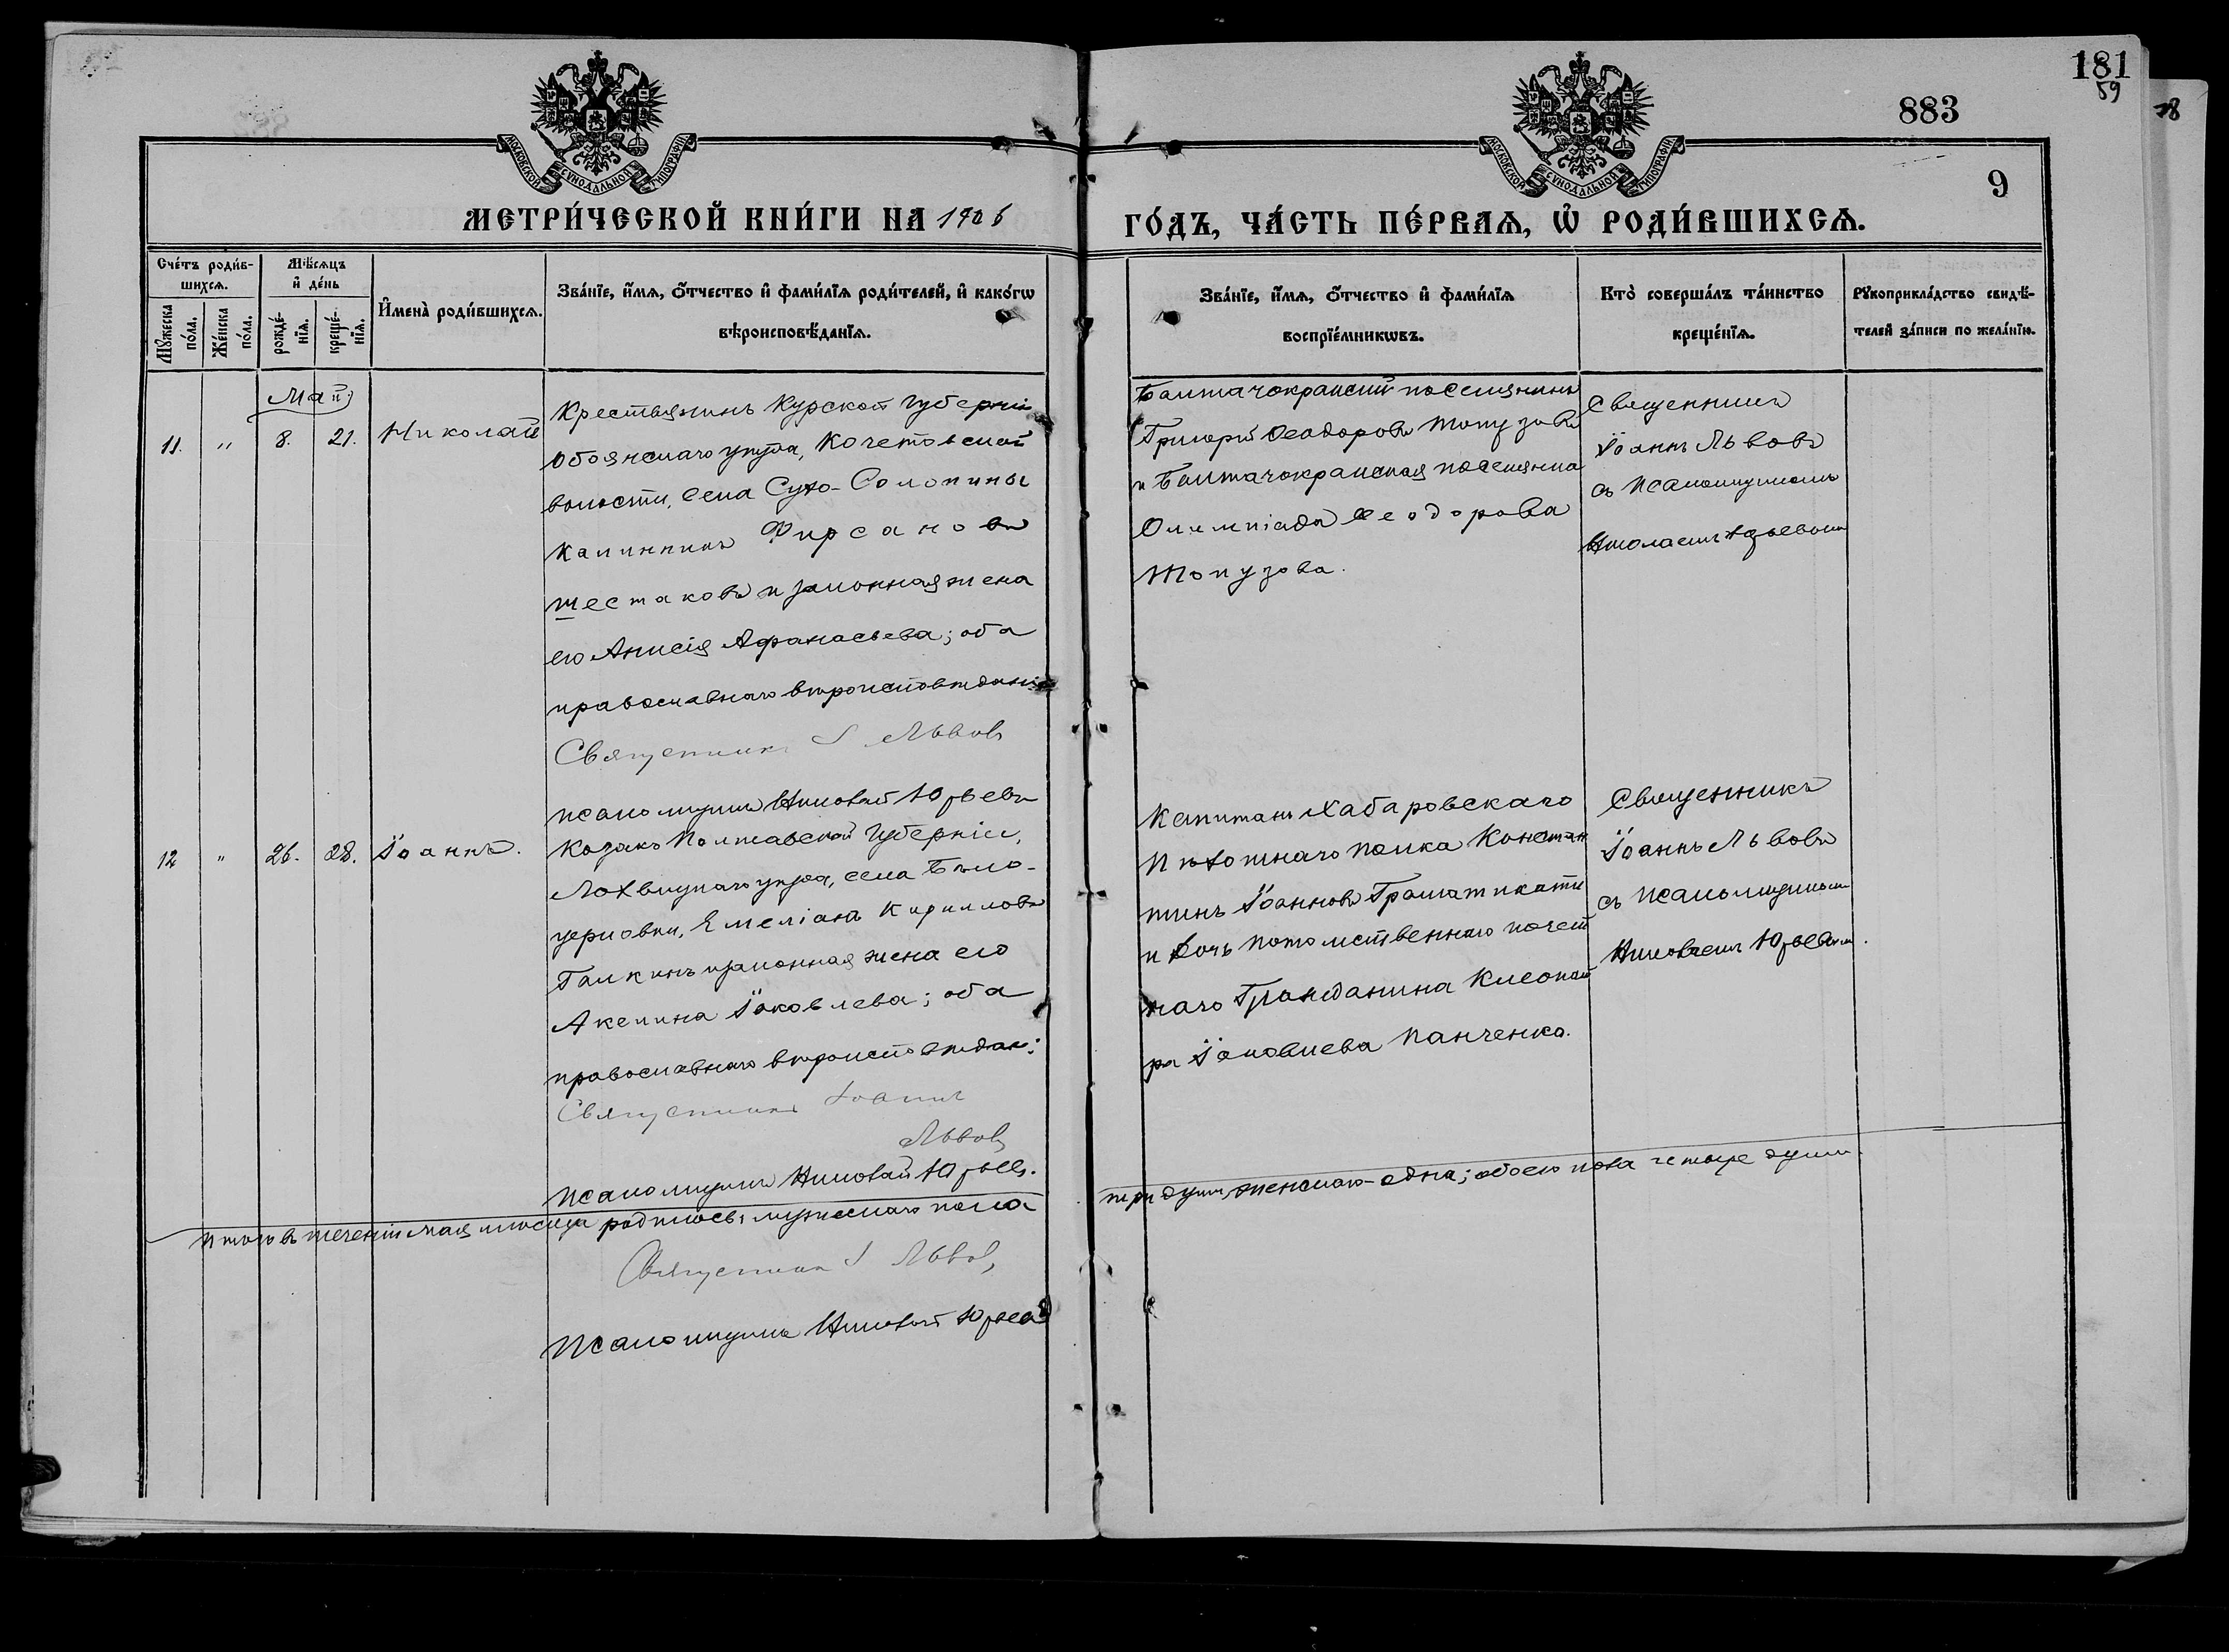 181
59
78
883
9
МОСКОВСКОЙ СѴНОДАЛЬНОЙ ТИПОГРАФІИ
МОСКОВСКОЙ СѴНОДАЛЬНОЙ ТИПОГРАФІИ
МЕТРИ́ЧЕСКОЙ КНИ́ГИ НА 1906
ГО́ДЪ, ЧА́СТЬ ПЕ́РВАѦ, Ѡ҆ РОДИ́ВШИХСѦ.
Сче́тъ роди́в-
шихсѧ.
Мꙋ́жеска по́ла.
Же́нска по́ла.
Мѣ́сѧцъ
и҆ де́нь
рожде́-
нїѧ.
креще́-
нїѧ.
И҆мена̀ роди́вшихсѧ.
Зва́нїе, и҆́мѧ, ѻ҆́тчество и҆ фами́лїѧ роди́телей, и҆ како́гѡ
вѣроисповѣ́данїѧ.
Зва́нїе, и҆́мѧ, ѻ҆́тчество и҆ фами́лїѧ
воспрїе́мникѡвъ.
Кто̀ соверша́лъ та́инство
креще́нїѧ.
Рꙋкоприкла́дство свидѣ́-
телей за́писи по жела́нїю.
Май
11. " 8. 21. Николай
Крестьянинъ Курской губерніи
Обоянскаго уѣзда, Кочетовской
волости, села Сухо-Солотины
Калинникъ Фирсановъ
Шестаковъ и законная жена
его Анисія Афанасьева; оба
православнаго вѣроисповѣданія
Священникъ І Львовъ
Псаломщикъ Николай Юрьевъ
Балтачокракский поселянинъ
Григорій Ѳеодоровъ Топузовъ
и Балтачокракская поселянка
Олимпіада Ѳеодорова
Топузова.
Священникъ
Іоаннъ Львовъ
съ псаломщикомъ
Николаемъ Юрьевымъ
12 " 26. 28. Іоаннъ.
Козакъ Полтавской губерніи,
Лохвицкаго уѣзда, села Бѣло-
церковки, Емеліанъ Кирилловъ
Галкинъ и законная жена его
Акилина Іаковлева; оба
православнаго вѣроисповѣдан:
Священникъ Іоаннъ
Львовъ
Псаломщикъ Николай Юрьевъ.
Капитанъ Хабаровскаго
Пѣхотнаго полка Констан
тинъ Іоанновъ Граматикати
и дочь потомственнаго почет
наго Гражданина Клеопат
ра Іаковлева Панченко.
Священникъ
Іоаннъ Львовъ
съ псаломщикомъ
Николаемъ Юрьевымъ.
Итого въ теченіи мая мѣсяца родилось: мужескаго пола
три души, женскаго-одна; обоего пола четыре души.
Священникъ І Львовъ
Псаломщикъ Николай Юрьевъ